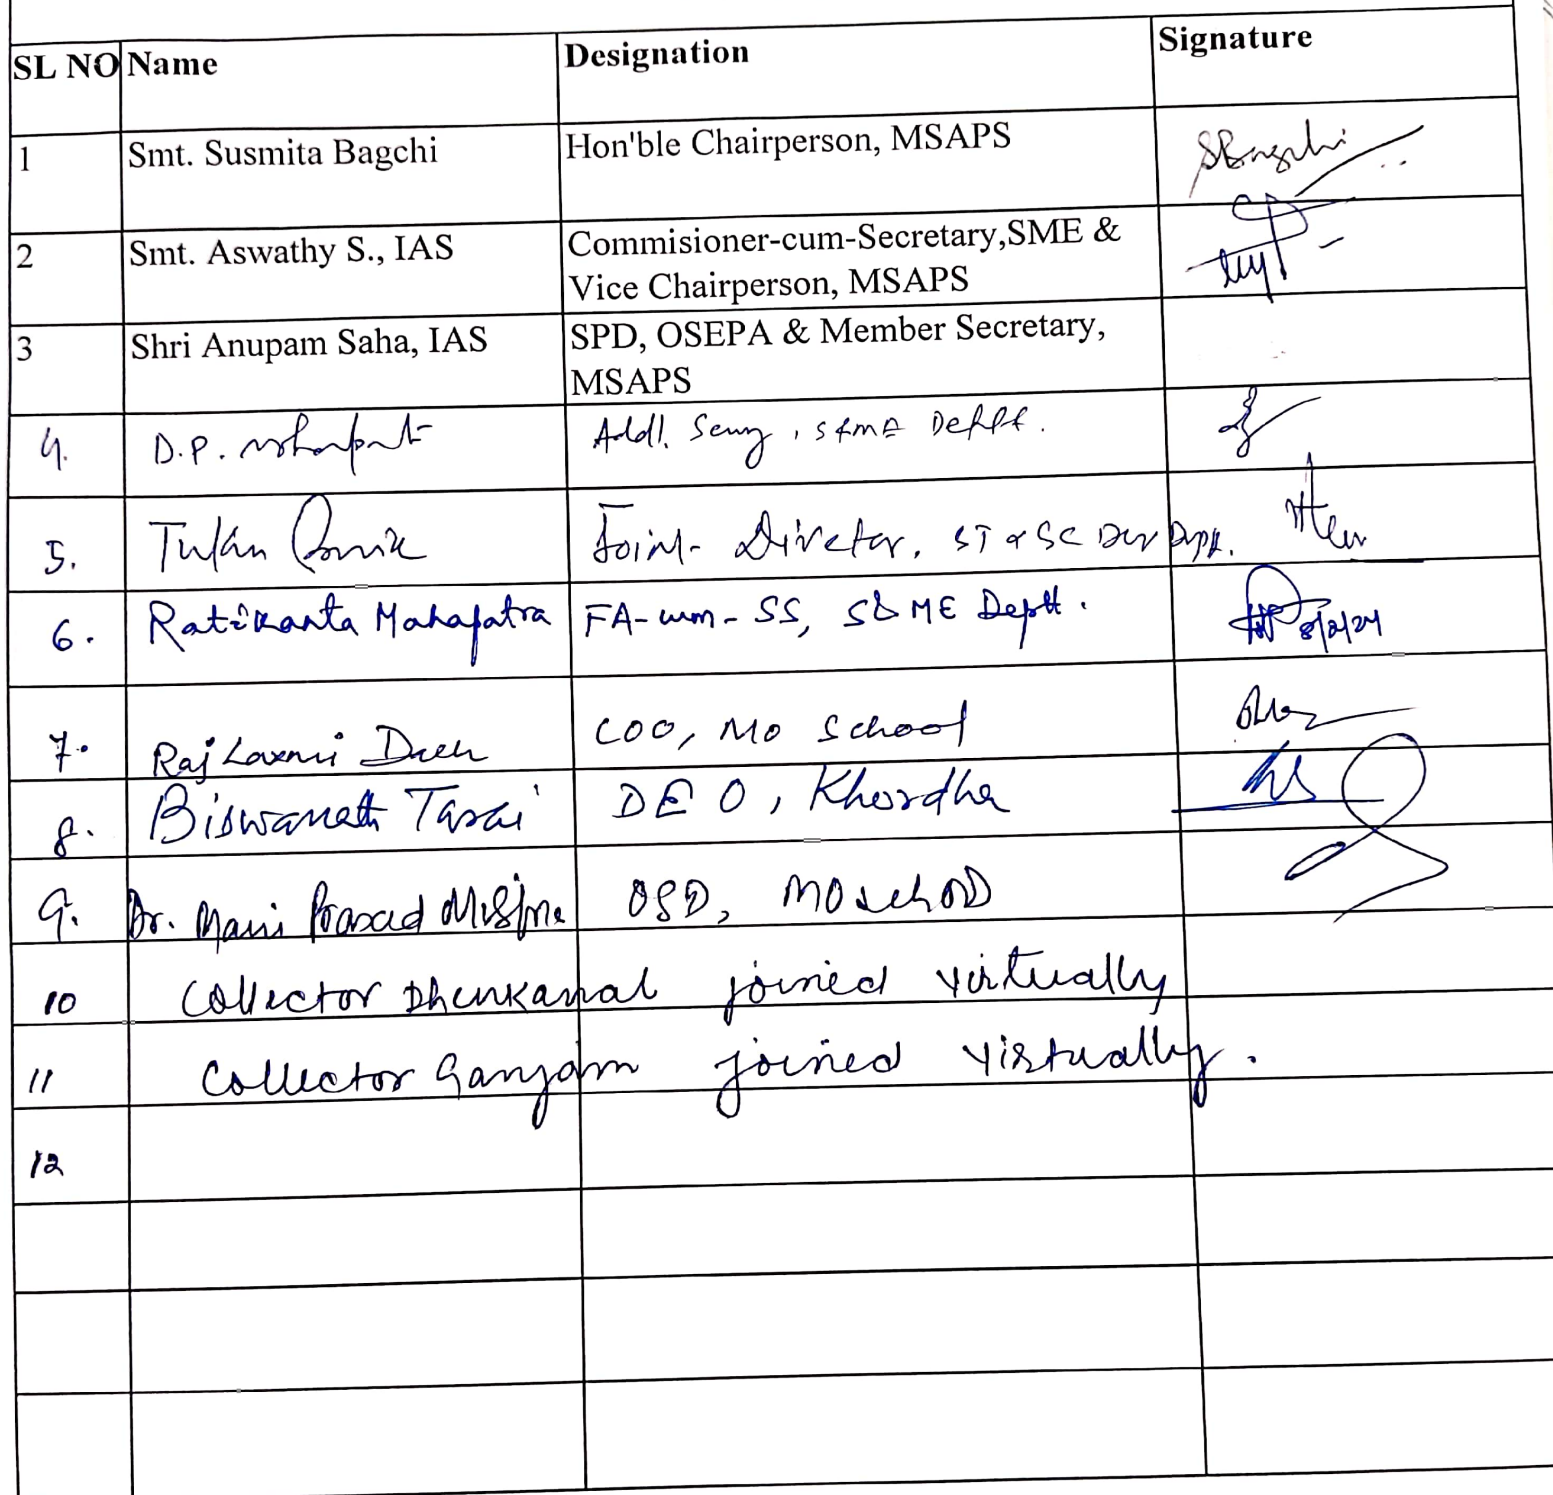 SL NO Name Designation Signature
1 Smt. Susmita Bagchi Hon'ble Chairperson, MSAPS SBagchi
2 Smt. Aswathy S., IAS Commisioner-cum-Secretary,SME &
Vice Chairperson, MSAPS
3 Shri Anupam Saha, IAS SPD, OSEPA & Member Secretary,
MSAPS
4. D.P. Mohapatra Addl. Secy, S&ME Deptt.
5. Tufan Joint Director, ST & SC Dev Dept.
6. Ratikanta Mahapatra FA-cum-SS, S&ME Deptt. 8/2/24
7. Raj Laxmi Dash COO, Mo School
8. Biswanath Tarai DEO, Khordha
9. Dr. Mani Prasad Mishra OSD, MO School
10 Collector Dhenkanal joined virtually
11 Collector Ganjam joined virtually.
12